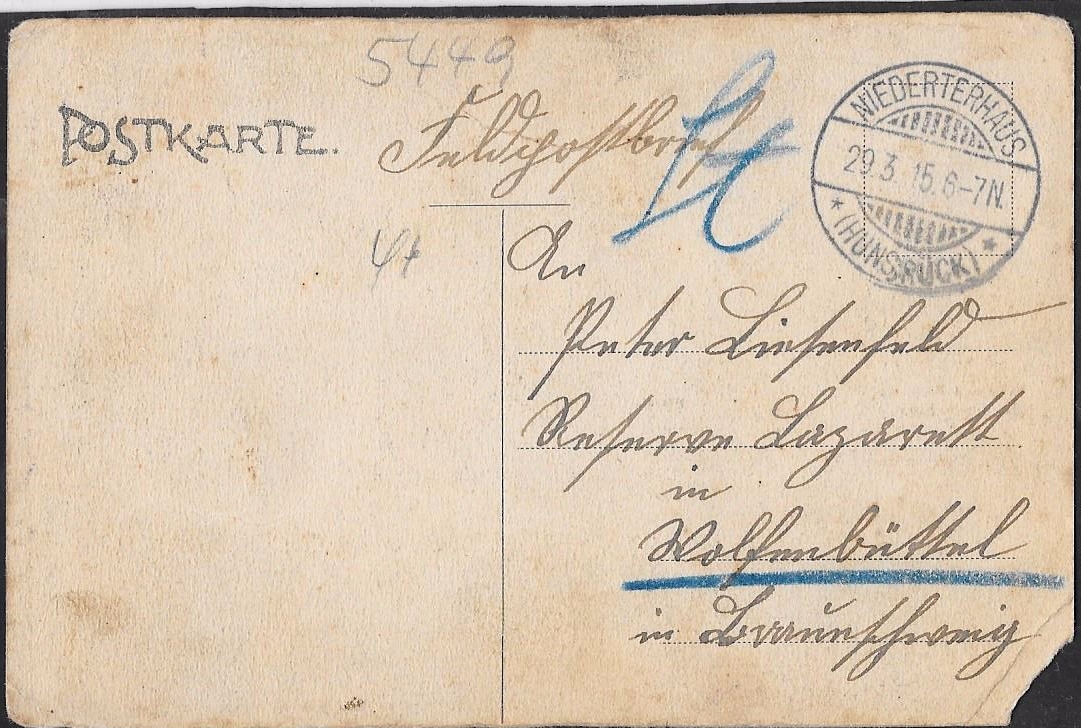 5449
POSTKARTE.
Feldpostbrief
NIEDERTERHAUS
29.3.15.6-7N.
* (HUNSRÜCK) *
An
Peter Liesenfeld
Reserve Lazarett
in
Wolfenbüttel
in Braunschweig